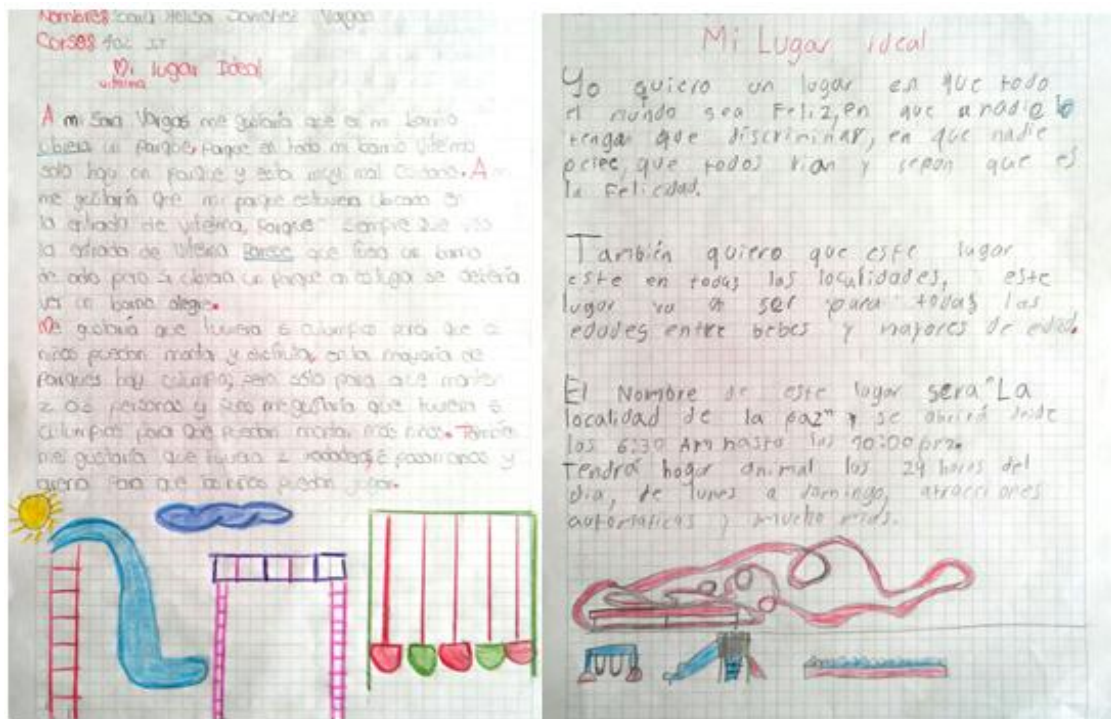 Nombres Sara Sanchez Vargas
Mi lugar Ideal
A mi Sara Vargas me gustaría que en mi barrio
un parque, porque en todo mi barrio Vitelma
solo hay un parque y esta muy mal Cuidado. A mi
me gustaría que mi parque estuviera ubicado en
la entrada de vitelma, porque siempre que veo
la entrada de Vitelma que fuera un barrio
de odio pero si un parque en se
ver un barrio alegre.
Me gustaría que tuviera 5 columpios para que
niños puedan montar y disfrutar, en la mayoría de
Parques hay columpios, pero sólo para que monten
2 o 3 personas y me gustaría que tuviera 5
columpios para que puedan montar mas niños. También
me gustaría que tuviera 2 pasamanos y
arena para que niños puedan jugar.
Mi Lugar ideal
Yo quiero un lugar en que todo
el mundo sea Feliz, en que a nadie lo
tengan que discriminar, en que nadie
pelee, que todos rian y sepan que es
la Felicidad.
También quiero que este lugar
este en todas las localidades, este
lugar va a ser para todas las
edades entre bebes y mayores de edad.
El Nombre de este lugar sera "La
localidad de la paz" y se abrirá desde
las 6:30 Am hasta las 10:00 pm.
Tendrá hogar animal las 24 horas del
dia, de lunes a domingo, atracciones
automaticas y mucho mas.